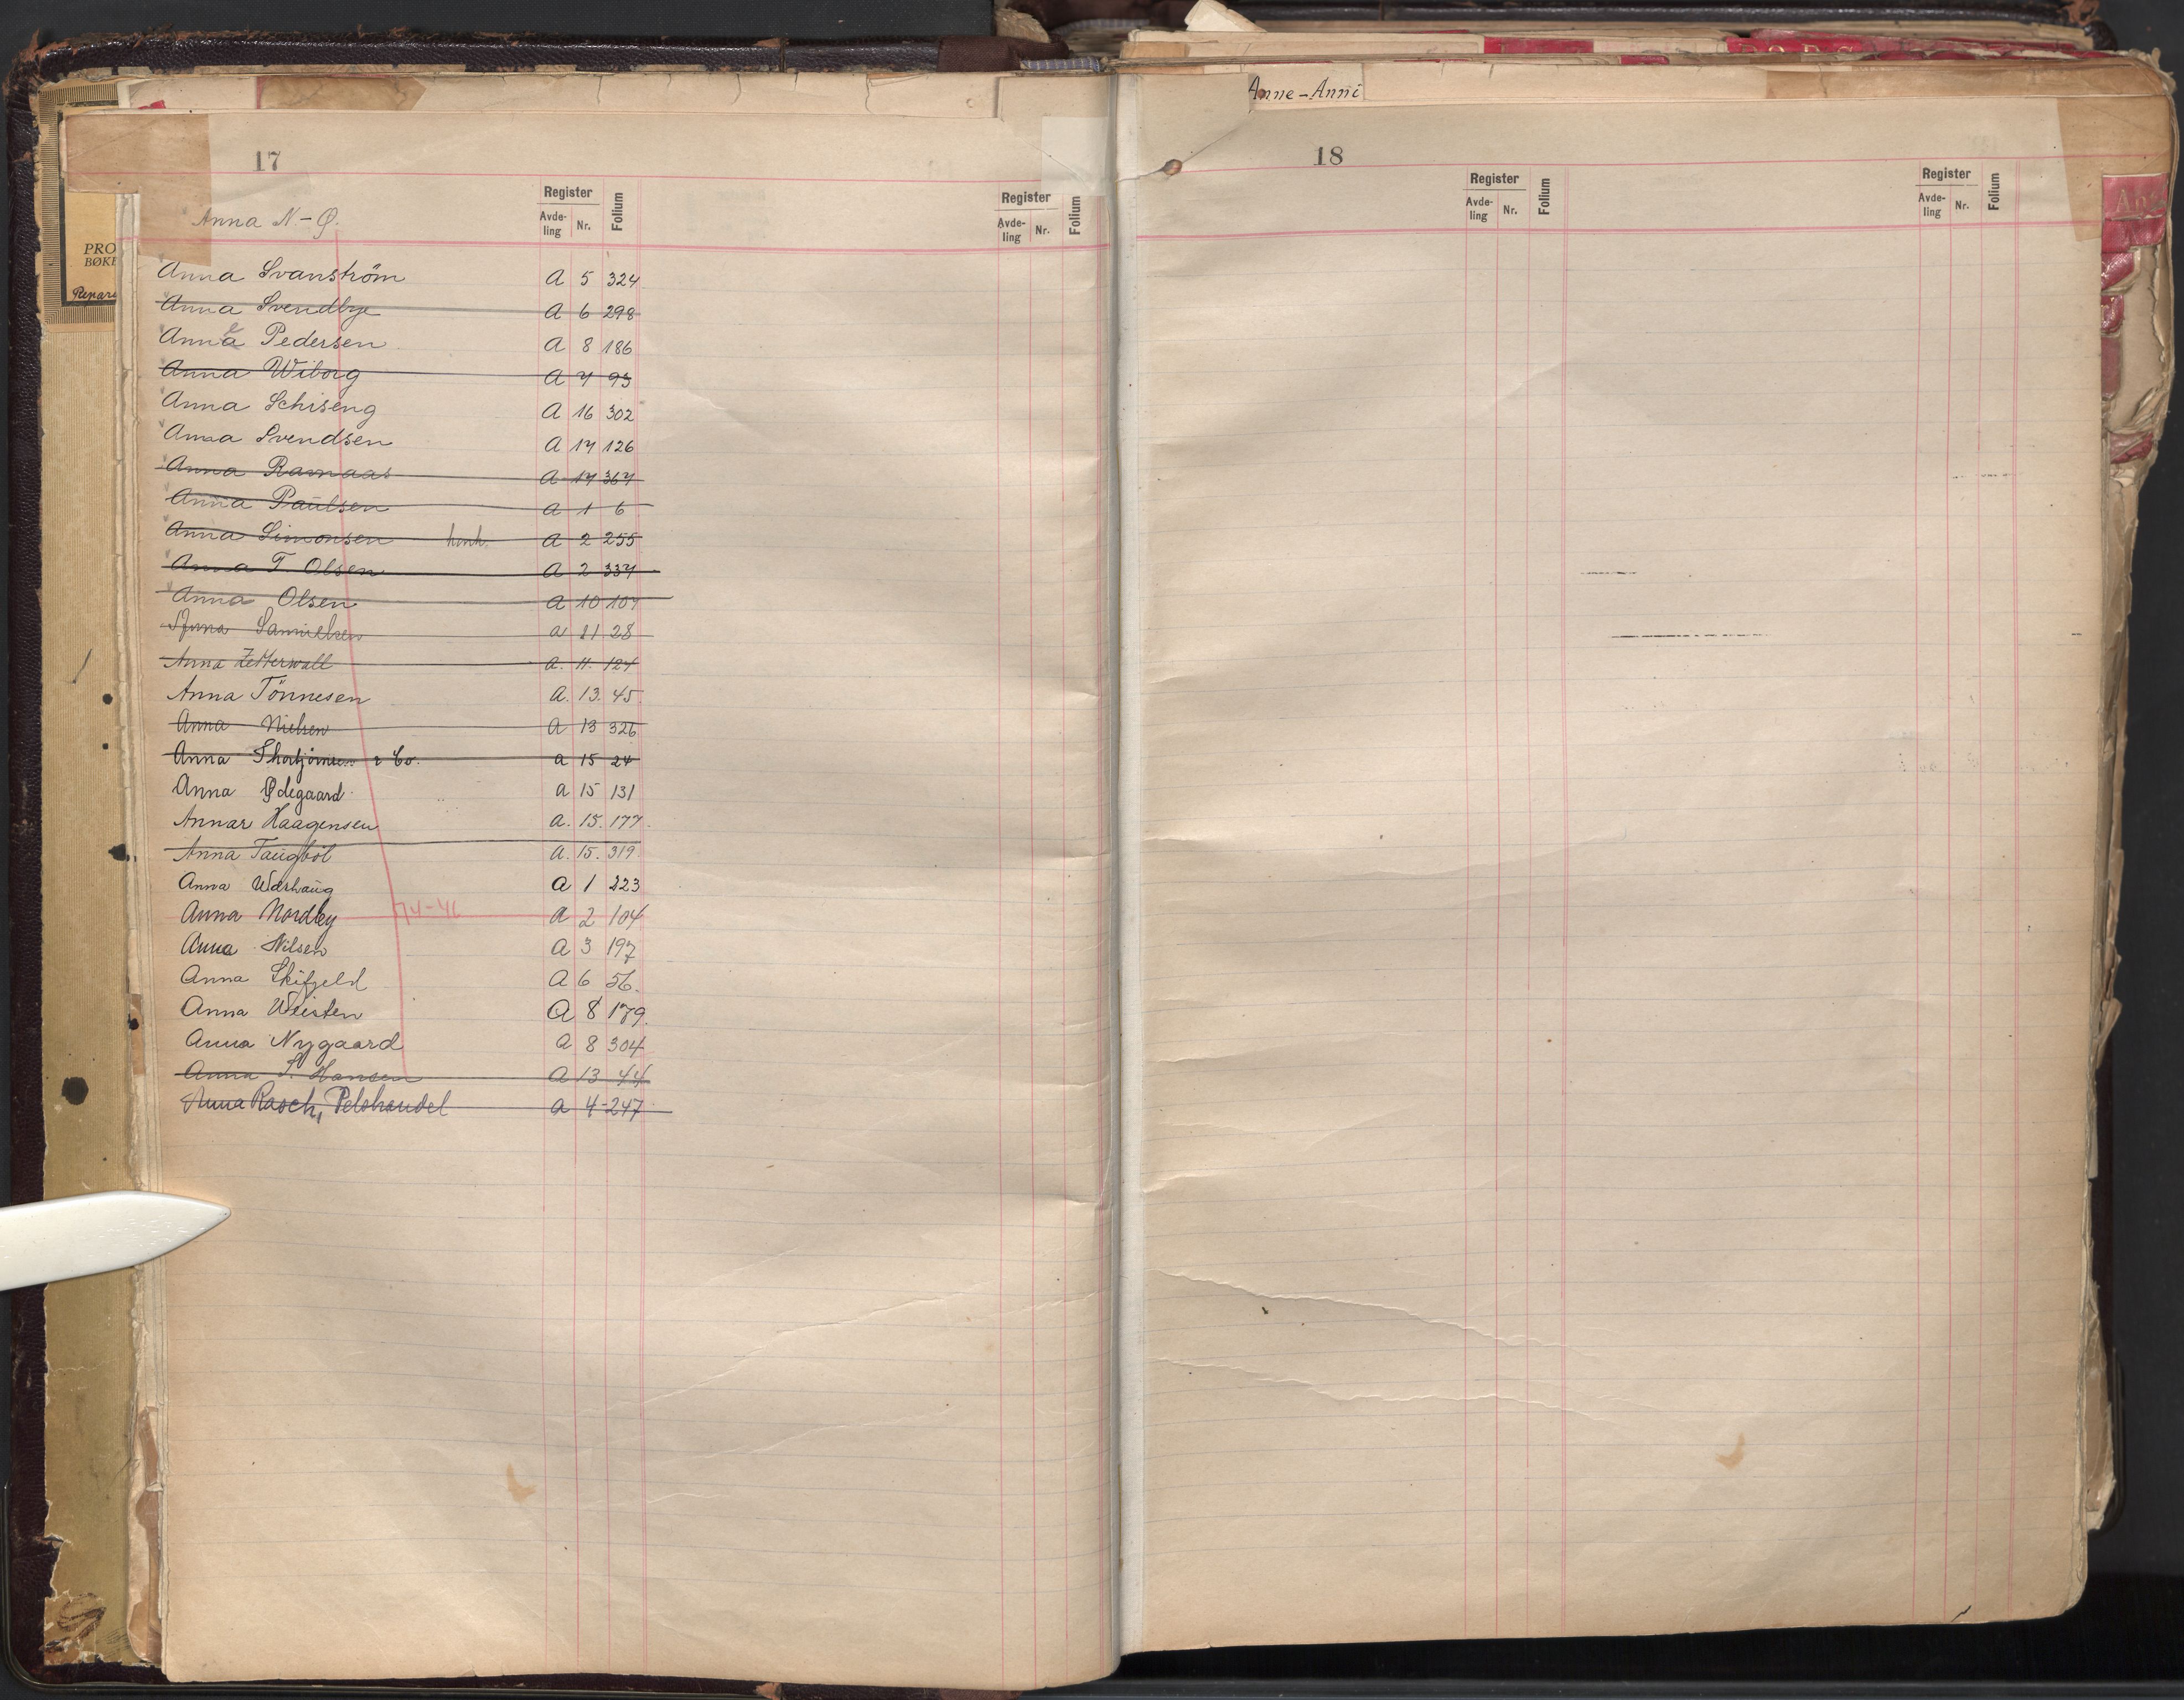 Anne - Anni
17
Register
Avde-
ling Nr. Folium
Register
Avde-
ling Nr. Folium
Anna N - Ø.
PRO
BØKE
Repar
Anna Svanström A 5 324
Anna Svendbye A 6 298
Anna Pedersen A 8 186
Anna Wiborg A 7 93
Anna Schiseng A 16 302
Anna Svendsen A 17 126
Anna Ravnaas A 17 367
Anna Paulsen A 1 6
Anna Simonsen A 2 255
Anna T. Olsen A 2 337
Anna Olsen A 10 107
Anna Samuelsen A 11 28
Anna Zetterwall A. 11. 127
Anna Tönnesen A. 13. 45
Anna Nielsen A 13 326
Anna Thorbjörnsen & Co. A 15 24
Anna Ødegaard A 15 131
Annar Haagensen A. 15. 177
Anna Taugböl A. 15. 319
Anna Wærhaug A 1 223
Anna Nordby 74-46 A 2 104
Anna Nilsen A 3 197
Anna Skifjeld A 6 56.
Anna Weisten A 8 179.
Anna Nygaard A 8 304
Anna S. Hansen A 13 44
Anna Rasch, Pelshandel A 4-247
18
Register
Avde-
ling Nr. Folium
Register
Avde-
ling Nr. Folium